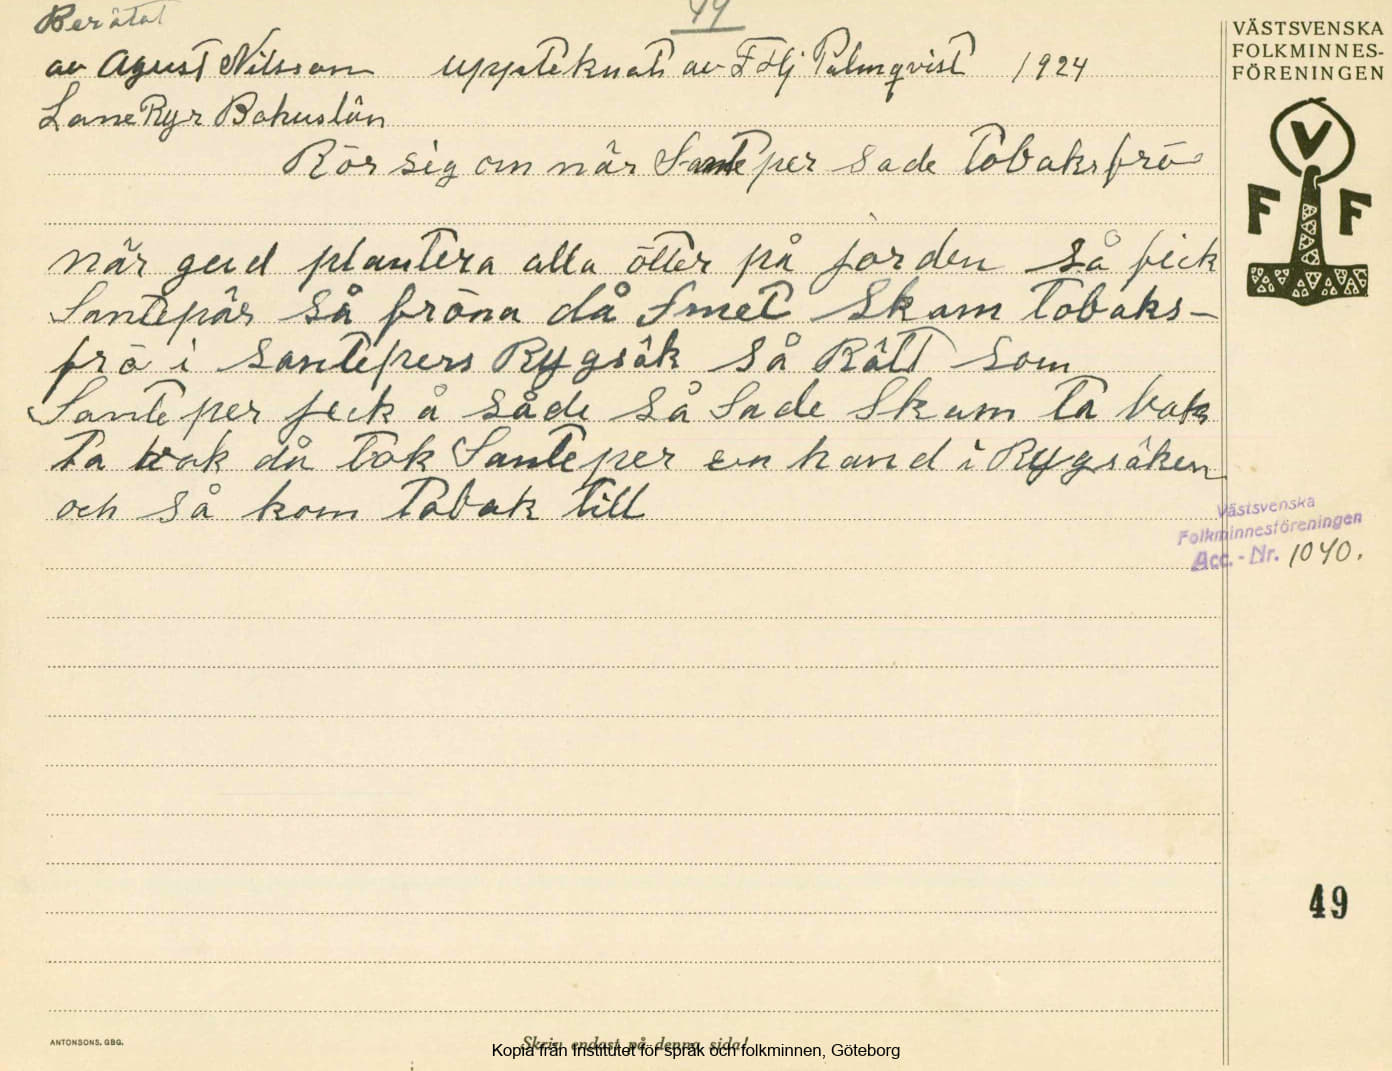 44
Berätat
av Agust Nilsson uppteknat av F Hj Palmqvist 1924
Lane Ryr Bohuslän
Rör sig om när Sante per sade tobaksfrö
når gud plantera alla ötter på jorden så fick
Santepär så fröna då smet Skam tobaks-
frö i santepers Rygsäk så Rätt som
Sante per feck å såde så Sade Skam ta bak
ta bak då tok Sante per en hand i Rygsäken
och så kom tabak till
VÄSTSVENSKA
FOLKMINNES-
FÖRENINGEN
V
F F
Västsvenska
Folkminnesföreningen
Acc.-Nr. 1040.
49
ANTONSONS, GBG.
Skriv endast på denna sida!
Kopia från Institutet för språk och folkminnen, Göteborg